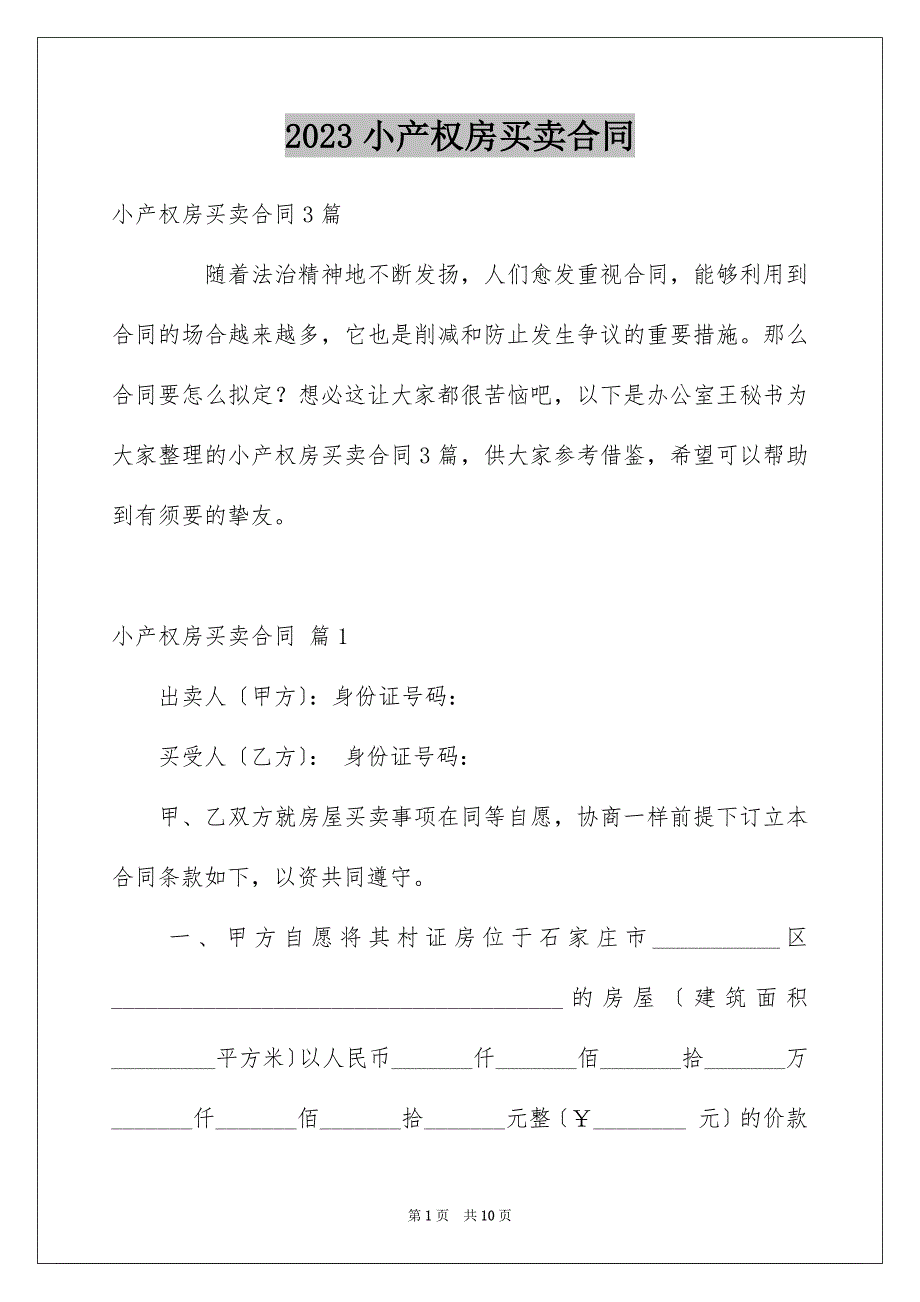 2023小产权房买卖合同
小产权房买卖合同3篇
随着法治精神地不断发扬，人们愈发重视合同，能够利用到
合同的场合越来越多，它也是削减和防止发生争议的重要措施。那么
合同要怎么拟定？想必这让大家都很苦恼吧，以下是办公室王秘书为
大家整理的小产权房买卖合同3篇，供大家参考借鉴，希望可以帮助
到有须要的挚友。
小产权房买卖合同 篇1
出卖人〔甲方〕：身份证号码：
买受人〔乙方〕： 身份证号码：
甲、乙双方就房屋买卖事项在同等自愿，协商一样前提下订立本
合同条款如下，以资共同遵守。
一、甲方自愿将其村证房位于石家庄市___________区
_______________________________________的房屋〔建筑面积
_________平方米〕以人民币_______仟_______佰_______拾_______万
_______仟_______佰_______拾_______元整〔￥________ 元〕的价款
第1页 共10页